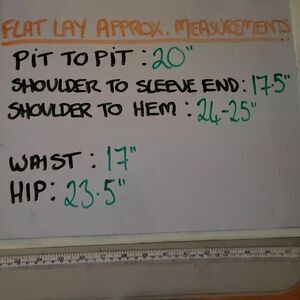 FLAT LAY APPROX. MEASUREMENTS
PIT TO PIT : 20"
SHOULDER TO SLEEVE END : 17.5"
SHOULDER TO HEM : 24-25"
WAIST : 17"
HIP : 23.5"